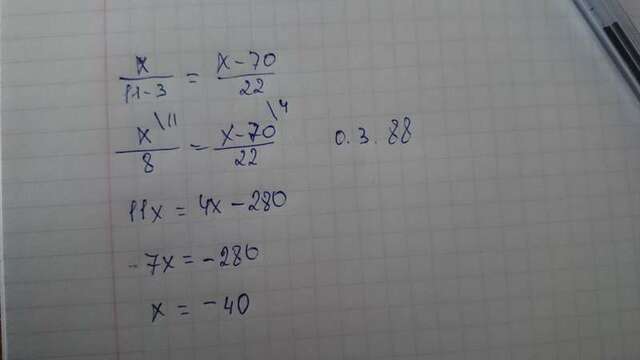 x/(11-3) = (x-70)/22
x\11/8 = (x-70)\4/22 О.З. 88
11x = 4x - 280
-7x = -280
x = -40